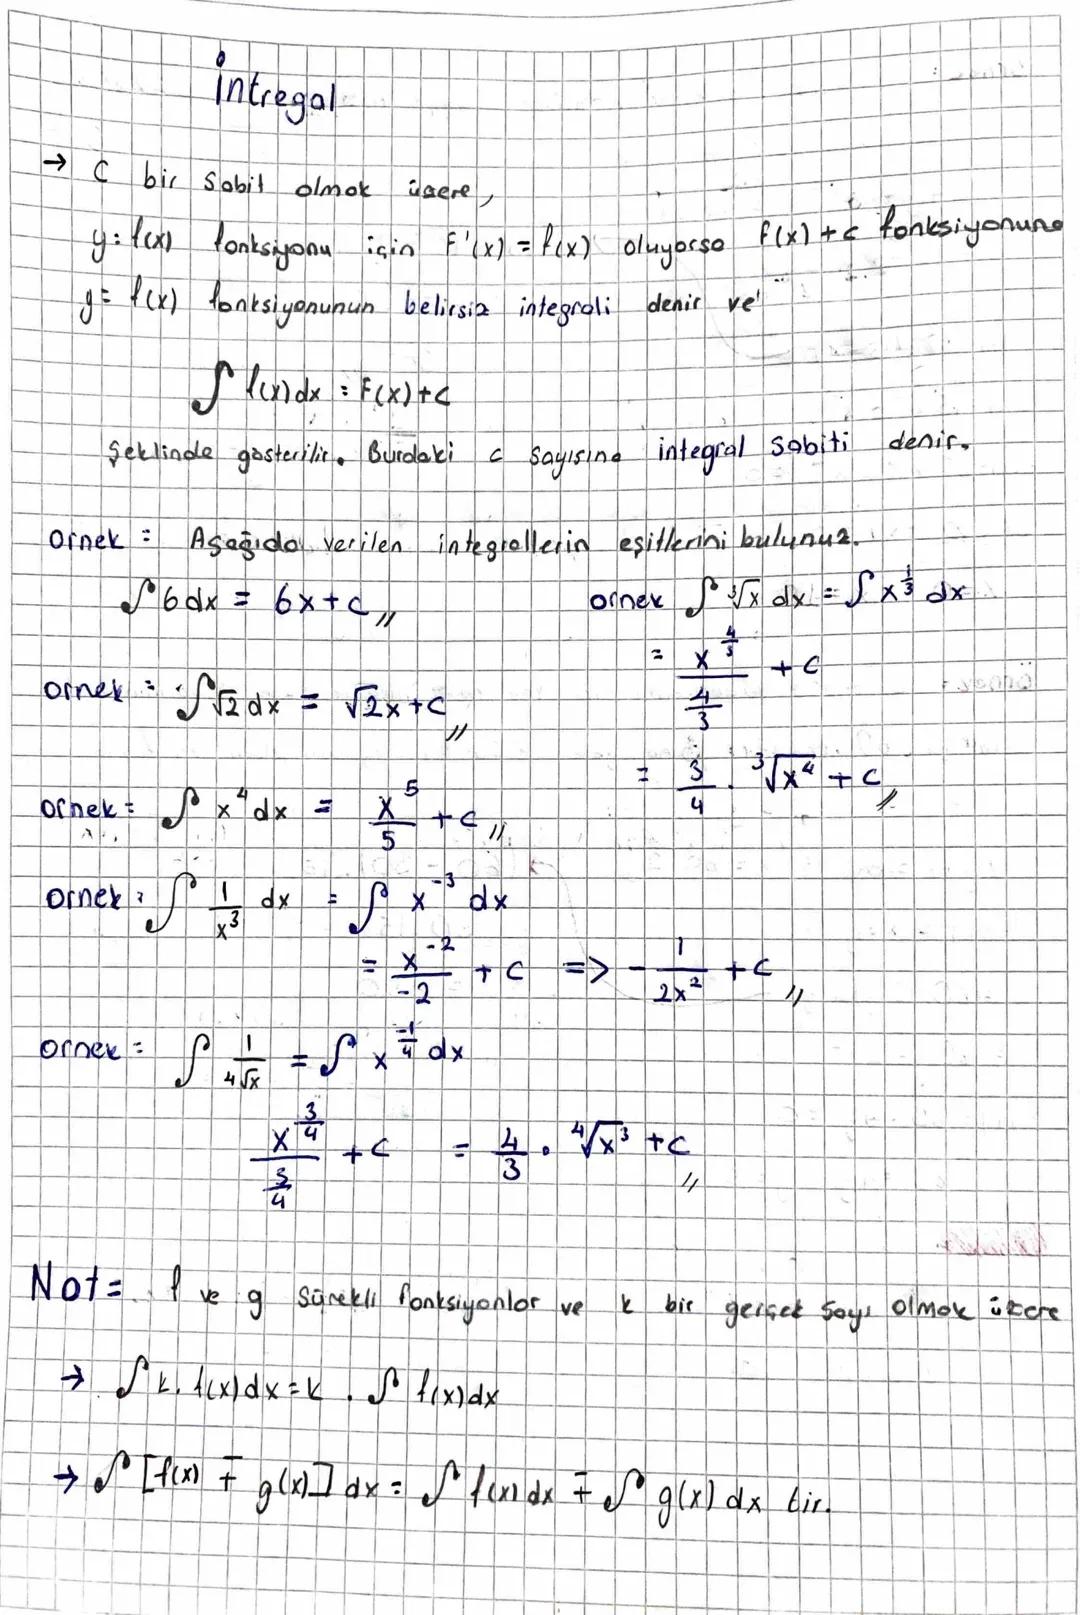 İntregal
→ C bir sabit olmak üzere,
y=f(x) fonksiyonu için F'(x) = f(x) oluyorsa F(x)+c fonksiyonuna
y= f(x) fonksiyonunun belirsiz integrali denir ve
∫ f(x)dx = F(x)+c
Şeklinde gösterilir. Burdaki c sayısına integral sabiti denir.
örnek = Aşağıda verilen integrallerin eşitlerini bulunuz.
∫6dx = 6x+c,,
örnek ∫ ∛x dx = ∫ x^(1/3) dx
= x^(4/3)/(4/3) + c
= 3/4 . ∛x⁴ + c,,
örnek = ∫√2 dx = √2x+c,,
örnek = ∫ x⁴dx = x⁵/5 + c,,
örnek = ∫ 1/x³ dx = ∫ x⁻³ dx
= x⁻²/-2 + c => - 1/2x² + c,,
örnek = ∫ 1/∜x = ∫ x^(-1/4) dx
x^(3/4)/(3/4) + c = 4/3 . ∜x³ + c,,
Not= f ve g sürekli fonksiyonlar ve k bir gerçek sayı olmak üzere
→ ∫ k. f(x)dx = k . ∫ f(x)dx
→ ∫ [f(x) ∓ g(x)] dx = ∫ f(x) dx ∓ ∫ g(x) dx tir.